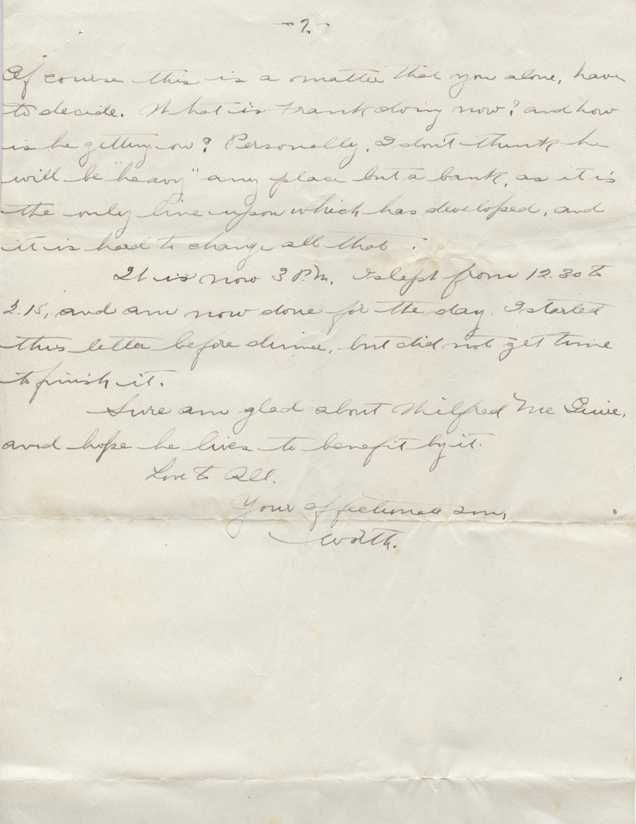 -7-
Of course this is a matter that you alone, have
to decide. What is Frank doing now? and how
is he getting on? Personally, I don't think he
will be "heavy" any place but a bank, as it is
the only line upon which has developed, and
it is hard to change all that.
It is now 3 P.M. I slept from 12.30 to
2.15, and am now done for the day. I started
this letter before dinner, but did not get time
to finish it.
Sure am glad about Wilfred Mc
and hope he lives to benefit by it.
Love to All.
Your affectionate son,
Worth.